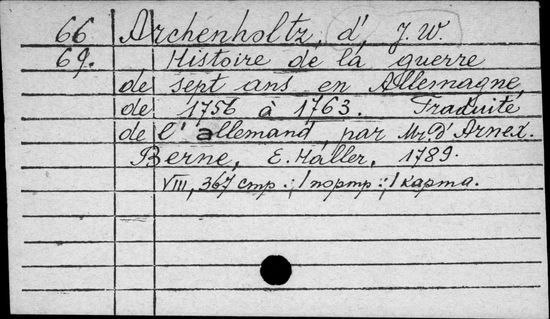 66 Archenholtz, d' J. W.
69. Histoire de la guerre
de sept ans en Allemagne,
de 1756 à 1763. Traduite
de l'allemand, par Mr d'Arnex.
Berne, E. Haller, 1789.
VIII, 367 стр.; 1 портр.; 1 карта.